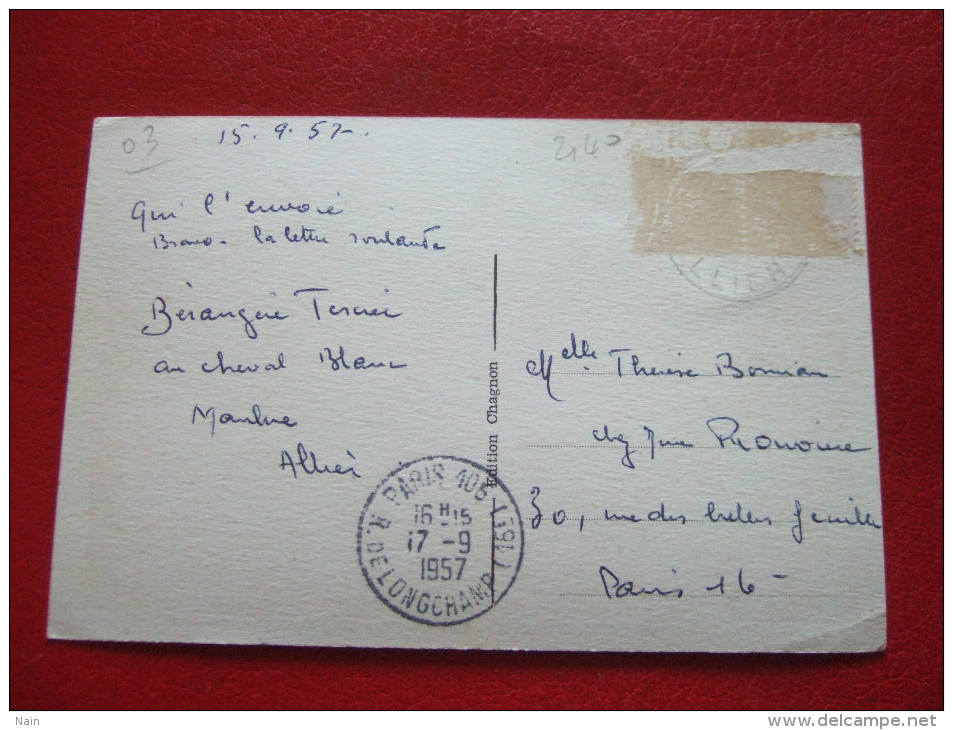 03
15.9.57.
2,40
Qui l'envoie
Bravo. la lettre suivante
Bérangère
au cheval Blanc
Allier
LLIER
Edition Chagnon
PARIS 106 (16E)
R. DE LONGCHAMP
16H15
17-9
1957
Melle. Thérèse
chez
30, rue des belles feuilles
Paris 16
Nain
www.delcampe.net